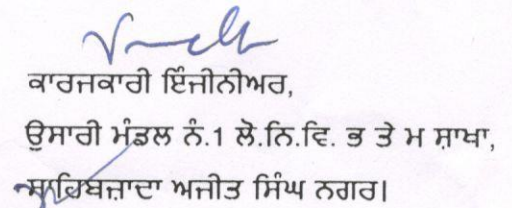 ਕਾਰਜਕਾਰੀ ਇੰਜੀਨੀਅਰ,
ਉਸਾਰੀ ਮੰਡਲ ਨੰ.1 ਲੋ.ਨਿ.ਵਿ. ਭ ਤੇ ਮ ਸ਼ਾਖਾ,
ਸਾਹਿਬਜ਼ਾਦਾ ਅਜੀਤ ਸਿੰਘ ਨਗਰ।